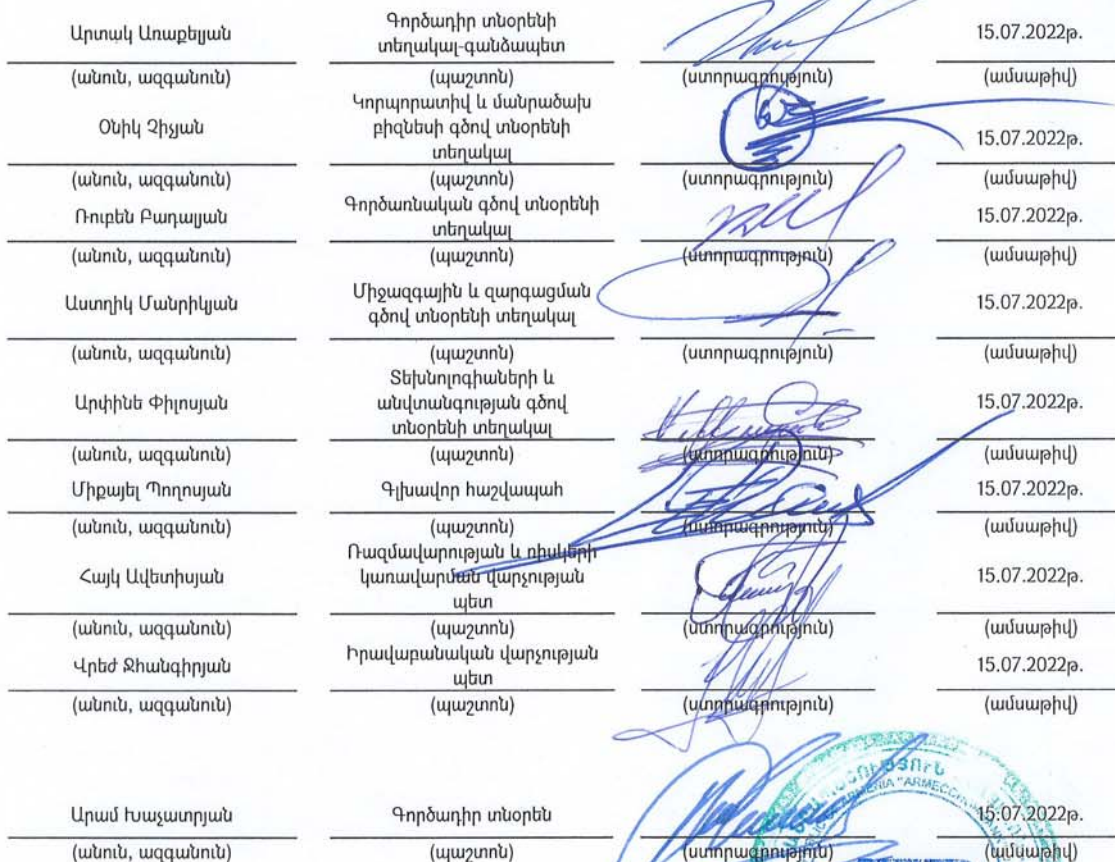 Արտակ Առաքելյան
Գործադիր տնօրենի
տեղակալ-գանձապետ
15.07.2022թ.
(անուն, ազգանուն) (պաշտոն) (ստորագրություն) (ամսաթիվ)
Օնիկ Չիչյան
Կորպորատիվ և մանրածախ
բիզնեսի գծով տնօրենի
տեղակալ
15.07.2022թ.
(անուն, ազգանուն) (պաշտոն) (ստորագրություն) (ամսաթիվ)
Ռուբեն Բադալյան
Գործառնական գծով տնօրենի
տեղակալ
15.07.2022թ.
(անուն, ազգանուն) (պաշտոն) (ստորագրություն) (ամսաթիվ)
Աստղիկ Մանրիկյան
Միջազգային և զարգացման
գծով տնօրենի տեղակալ
15.07.2022թ.
(անուն, ազգանուն) (պաշտոն) (ստորագրություն) (ամսաթիվ)
Արփինե Փիլոսյան
Տեխնոլոգիաների և
անվտանգության գծով
տնօրենի տեղակալ
15.07.2022թ.
(անուն, ազգանուն) (պաշտոն) (ստորագրություն) (ամսաթիվ)
Միքայել Պողոսյան
Գլխավոր հաշվապահ
15.07.2022թ.
(անուն, ազգանուն) (պաշտոն) (ստորագրություն) (ամսաթիվ)
Հայկ Ավետիսյան
Ռազմավարության և ռիսկերի
կառավարման վարչության
պետ
15.07.2022թ.
(անուն, ազգանուն) (պաշտոն) (ստորագրություն) (ամսաթիվ)
Վրեժ Ջհանգիրյան
Իրավաբանական վարչության
պետ
15.07.2022թ.
(անուն, ազգանուն) (պաշտոն) (ստորագրություն) (ամսաթիվ)
Արամ Խաչատրյան
Գործադիր տնօրեն
15.07.2022թ.
(անուն, ազգանուն) (պաշտոն) (ստորագրություն) (ամսաթիվ)